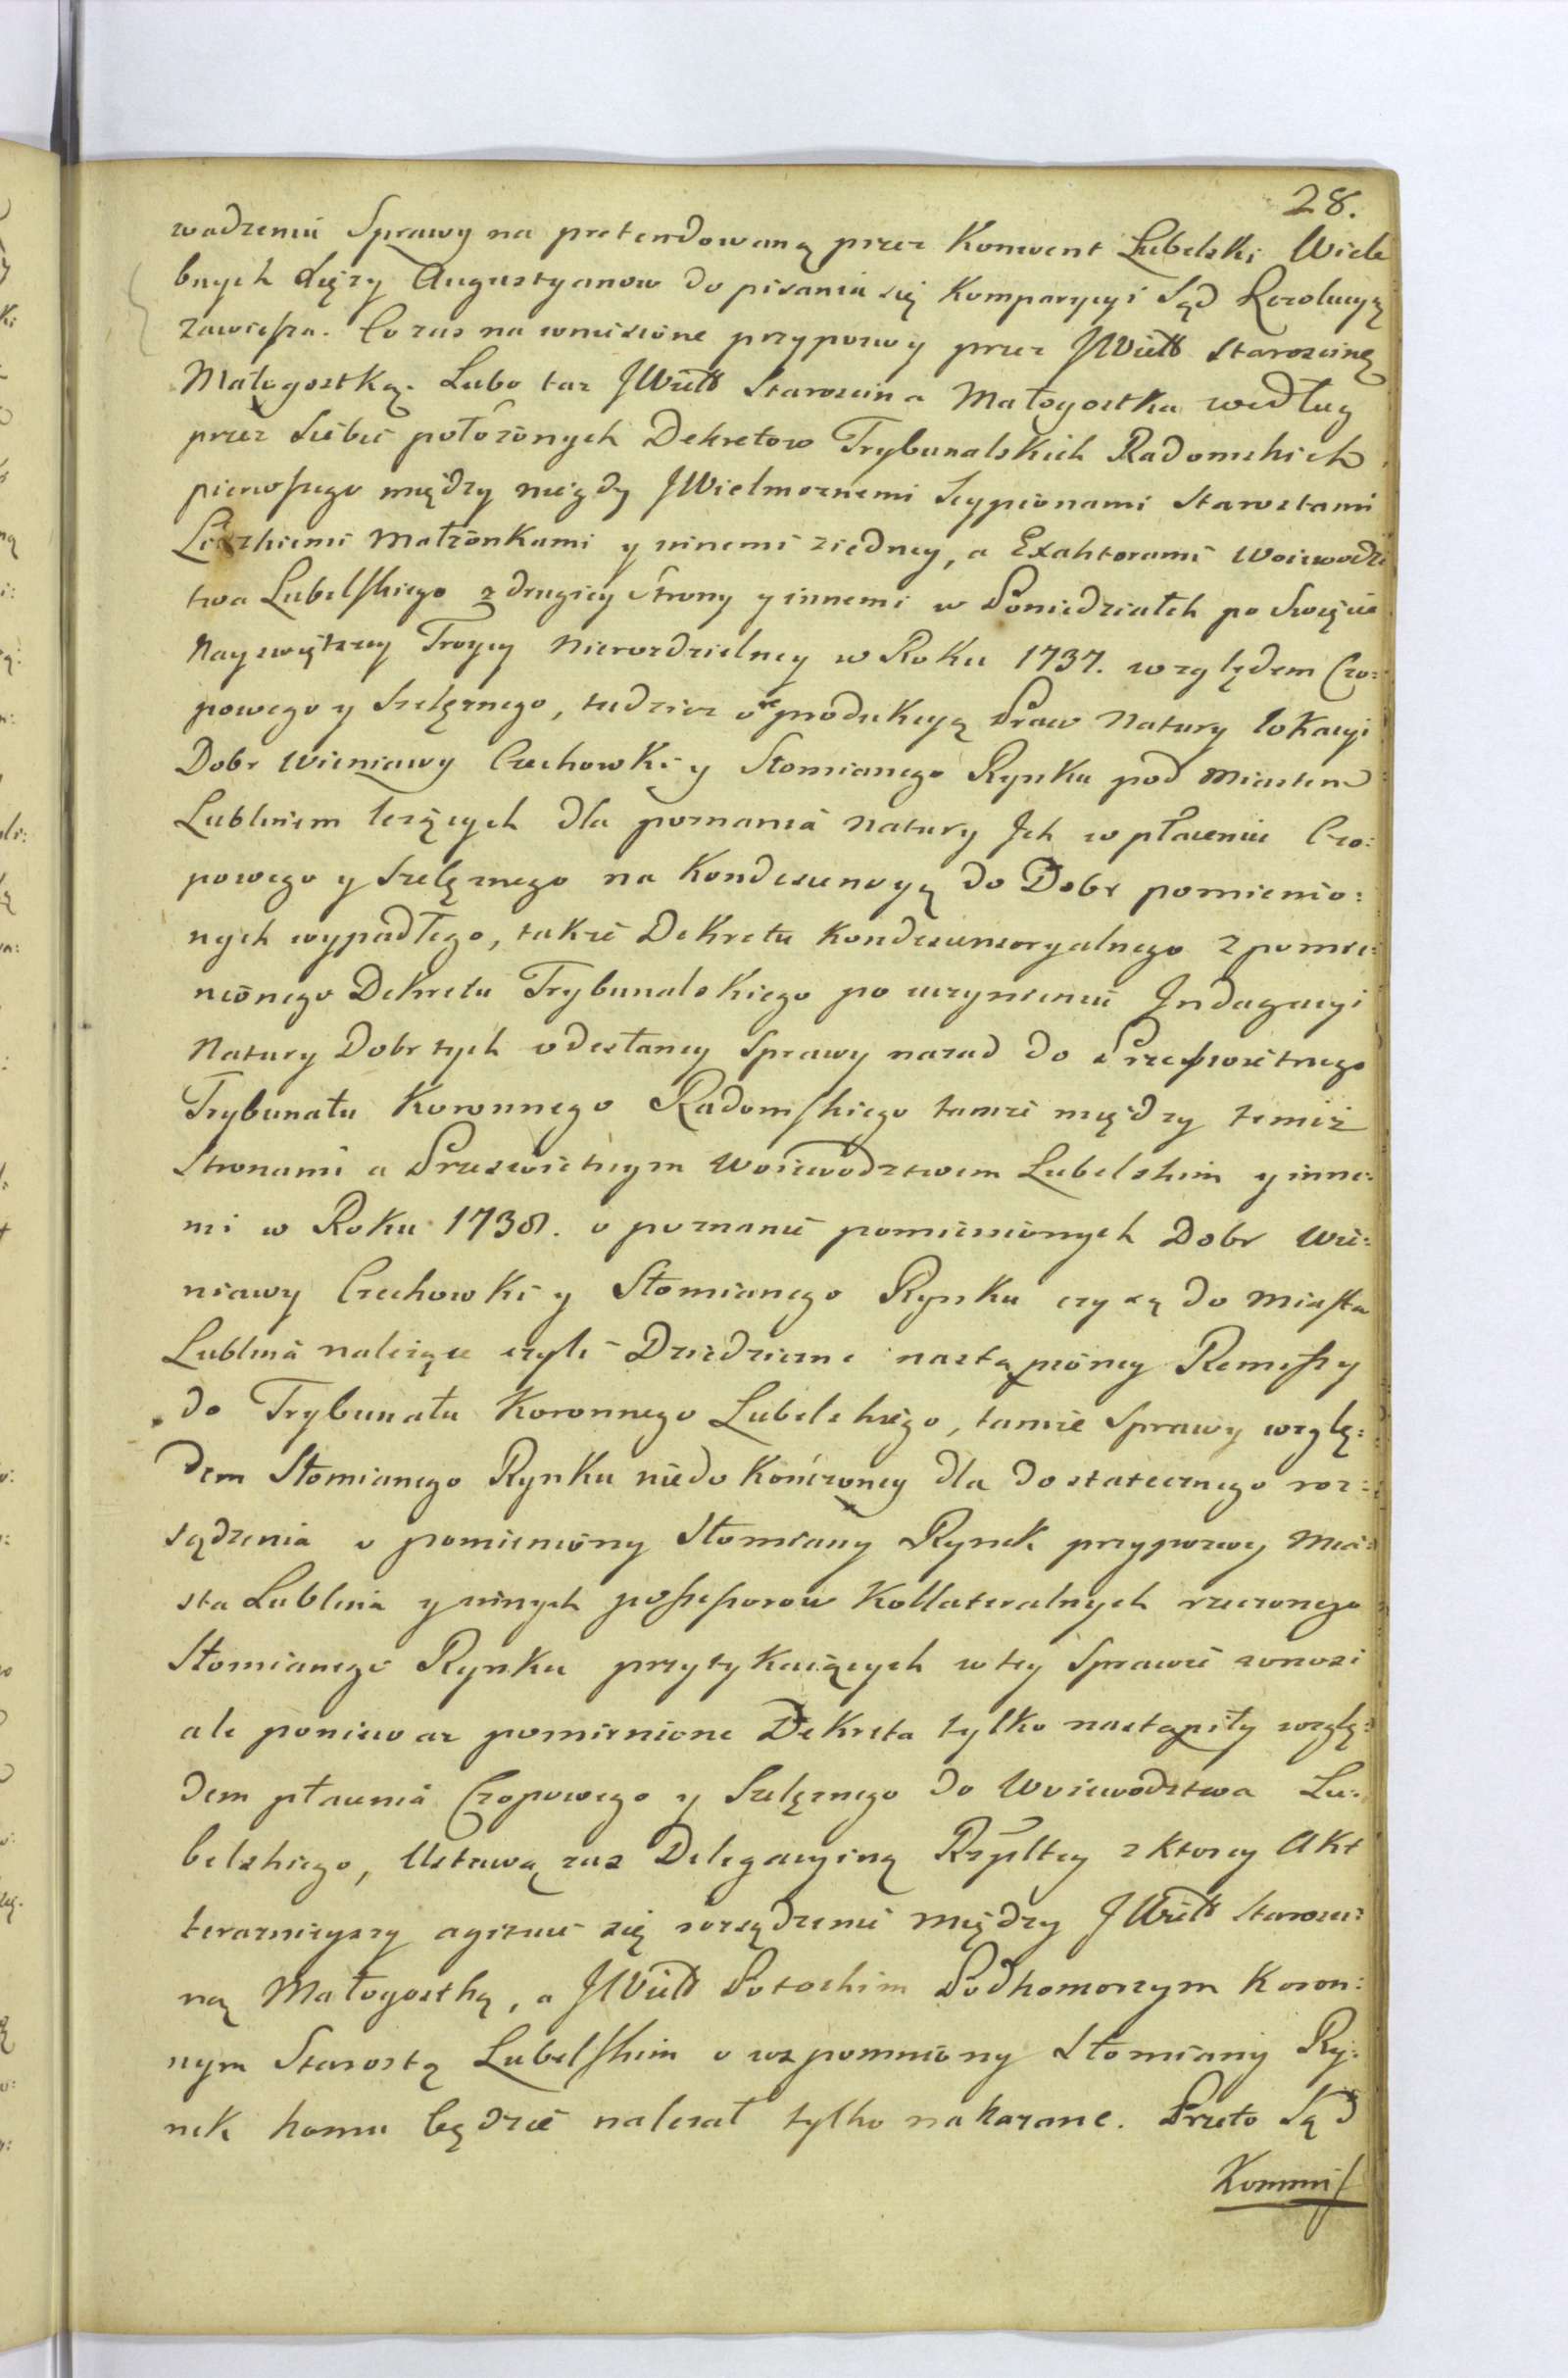 28.
wadzeniu Sprawy na pretendowaną przez Konwent Lubelski Wiele
bnych Xięży Augustyanow do pisania się Komparycyi Sąd Rezolucyą
zawiesza. Co zas na wniesione przypozwy przez JWielb Staroscinę
Małogostką. Lubo taz JWielb Staroscina Małogostka według
przez Siebie położonych Dekretow Trybunalskich Radomskich
pierwszego między między JWielmoznemi Scypionami Starostami
Lidzkiemi Małżonkami y innemi ziedney, a Exaktorami Woiewodz
twa Lubelskiego z drugiey Strony y innemi w Poniedziałek po Swięcie
Nayswiętszey Troycy Nierozdzielney w Roku 1737. względem Czo:
powego y Szelęznego, tudziez o reprodukcyą Praw Natury lokacyi
Dobr Wieniawy Czechowki y Słomianego Rynku pod Miastem
Lublinem leżących dla poznania natury Jch w płaceniu Czo:
powego y Szelęznego na Kondescencyą do Dobr pomienio:
nych wypadłego, takze Dekretu Kondescensoryalnego z pomie:
nionego Dekretu Trybunalskiego po uczynieniu Jndagacyi
Natury Dobr tych odesłaney Sprawy nazad do Przeswietnego
Trybunału Koronnego Radomskiego tamze między temiż
Stronami a Przeswietnym Woiewodztwem Lubelskim y inne:
mi w Roku 1738. o poznanie pomienionych Dobr Wie:
niawy Czechowki y Słomianego Rynku czy są do Miasta
Lublina należące czyli Dziedziczne nastąpioney Remissy
do Trybunału Koronnego Lubelskiego, tamze Sprawy wzglę:
dem Słomianego Rynku niedokończoney dla dostatecznego roz:
sądzenia o pomieniony Słomiany Rynek przypozwy Mia:
sta Lublina y innych possessorow Kollateralnych rzeczonego
Słomianego Rynku przytykaiących w tey Sprawie wnosi
ale poniewaz pomienione Dekreta tylko nastąpiły wzglę:
dem płacenia Czopowego y Szelęznego do Woiewodztwa Lu:
belskiego, Ustawą zas Delegacyiną Rzpltey z ktorey Akt
teraznieyszy agituie się rozsądzenie między JWielb Starosci:
ną Małogostką, a JWielb Potockim Podkomorzym Koron:
nym Starostą Lubelskim o wspomniony Słomiany Ry:
nek komu będzie nalezał tylko nakazane. Przeto Sąd
Kommis